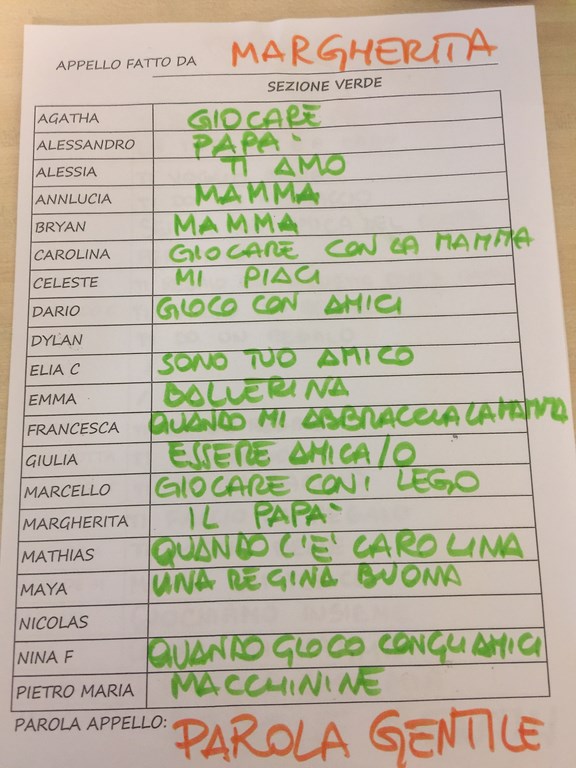 APPELLO FATTO DA MARGHERITA
SEZIONE VERDE
AGATHA GIOCARE
ALESSANDRO PAPA'
ALESSIA TI AMO
ANNLUCIA MAMMA
BRYAN MAMMA
CAROLINA GIOCARE CON LA MAMMA
CELESTE MI PIACI
DARIO GIOCO CON AMICI
DYLAN
ELIA C SONO TUO AMICO
EMMA BALLERINA
FRANCESCA QUANDO MI ABBRACCIA LA MAMMA
GIULIA ESSERE AMICA/O
MARCELLO GIOCARE CON I LEGO
MARGHERITA IL PAPA'
MATHIAS QUANDO C'E' CAROLINA
MAYA UNA REGINA BUONA
NICOLAS
NINA F QUANDO GIOCO CON GLI AMICI
PIETRO MARIA MACCHININE
PAROLA APPELLO: PAROLA GENTILE